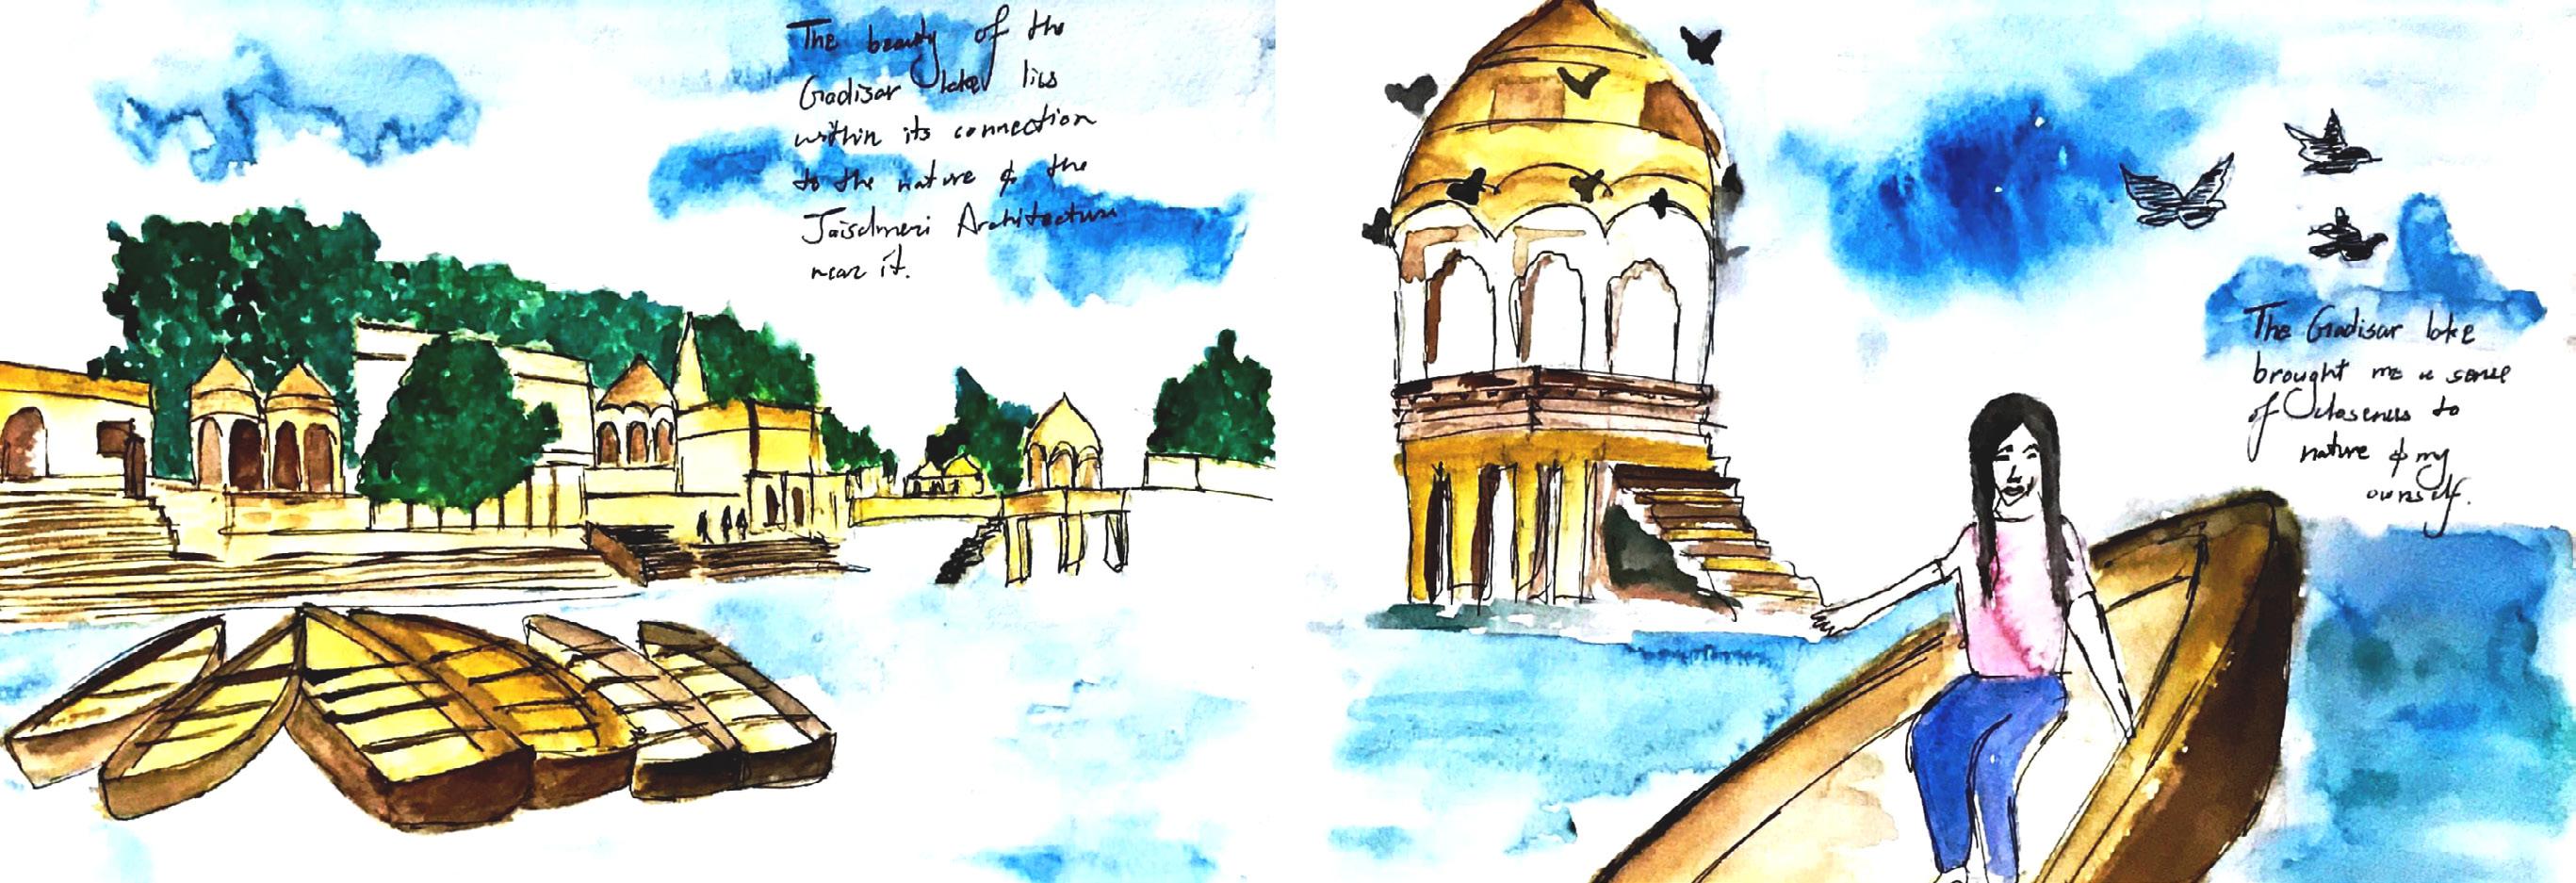 The beauty of the
Gadisar lake lies
within its connection
to the nature & the
Jaisalmeri Architecture
near it.
The Gadisar lake
brought me a sense
of closeness to
nature & my
ownself.